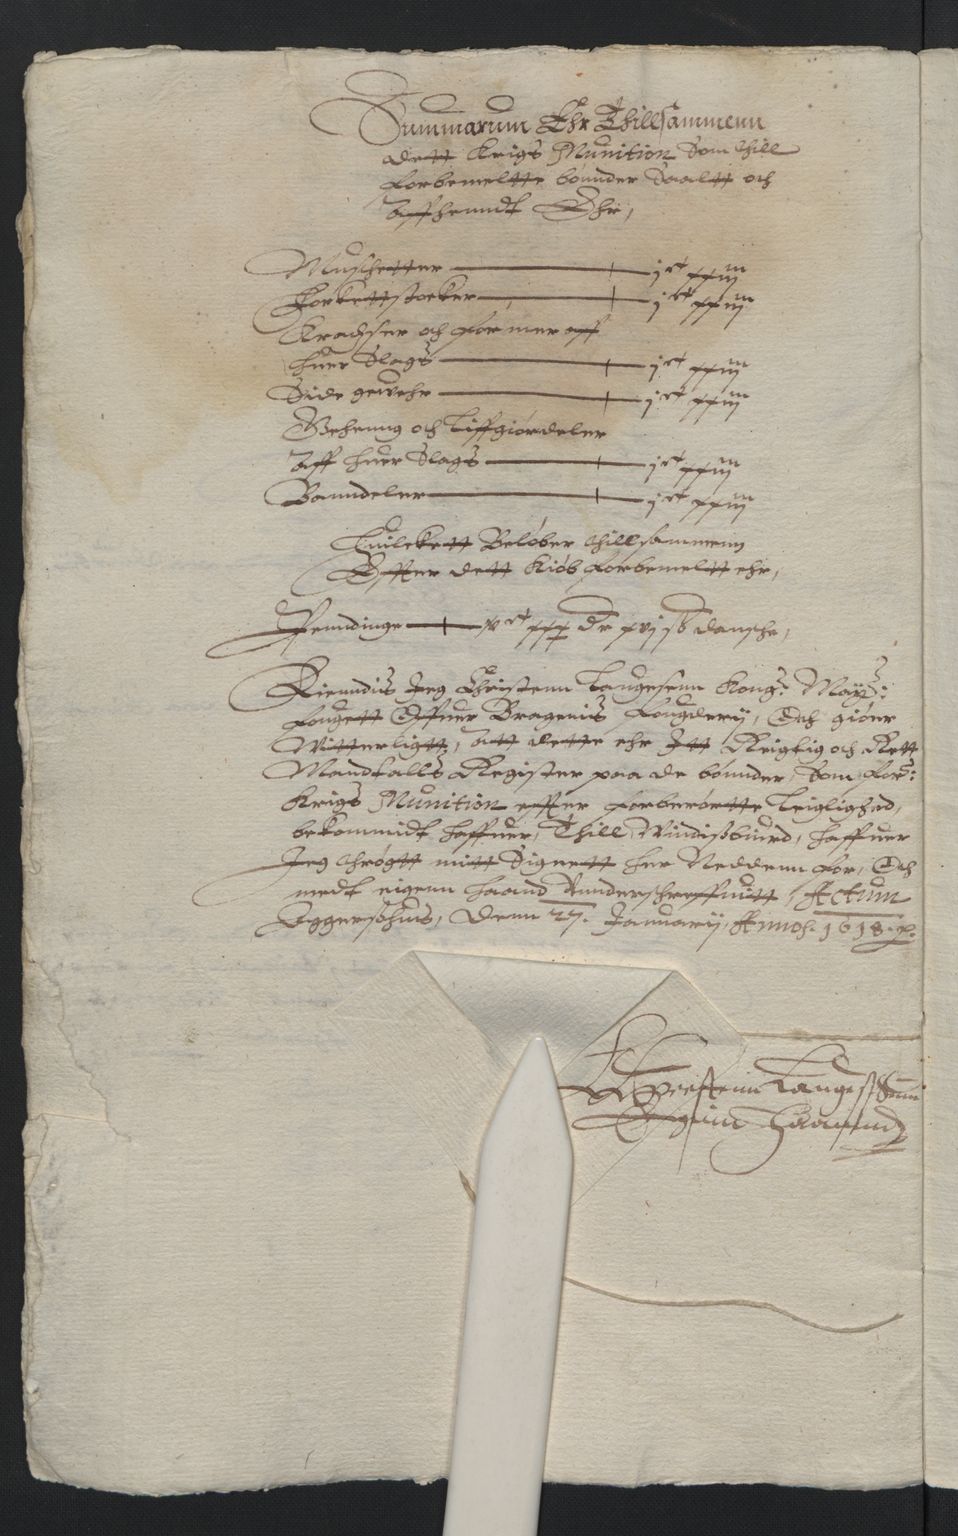 Summarum Ehr Thillsammenn
dett Krigs Munition Som thill
forbemeltte bønnder Saaltt och
Affhenndt Ehr,
Muschetter — j ct xxiij
Forkettstocker — j ct xxiij
Kradtser och former aff
huer Slags — j ct xxiij
Side gewehr — j ct xxiij
Gehenng och Liffgiørdeler
Aff huer Slags — j ct xxiij
Banndeler — j ct xxiij
Huilckett Beløber thillsammenn
Effter dett Kiøb forbemeltt ehr,
Penndinge — dr xvj ß dansche,
Kienndis Jeg Christenn Laugesenn Kong: May:
fougett Offuer Bragenis fougderij, Och giøer
Witterligtt, Att dette ehr Itt Rigtig och Rett
Mandtalls Register paa de bønnder, Som for:
Krigs Munition effter forberørtte Leiglighed,
bekommidt haffuer, Thill Windißbiurd, haffuer
Jeg throgtt mitt Signett her Neddenn for, Och
medt eigenn haand Vunderschreffuitt, Actum
Aggershuus, Denn 27. Januarij, Annoh. 1618.
Chrestenn Laugeßenn
Egenn Haanndt